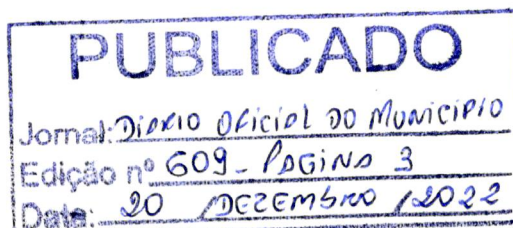 PUBLICADO
Jornal: DIARIO OFICIAL DO MUNICIPIO
Edição nº 609 - PAGINA 3
Data: 20 / DEZEMBRO / 2022